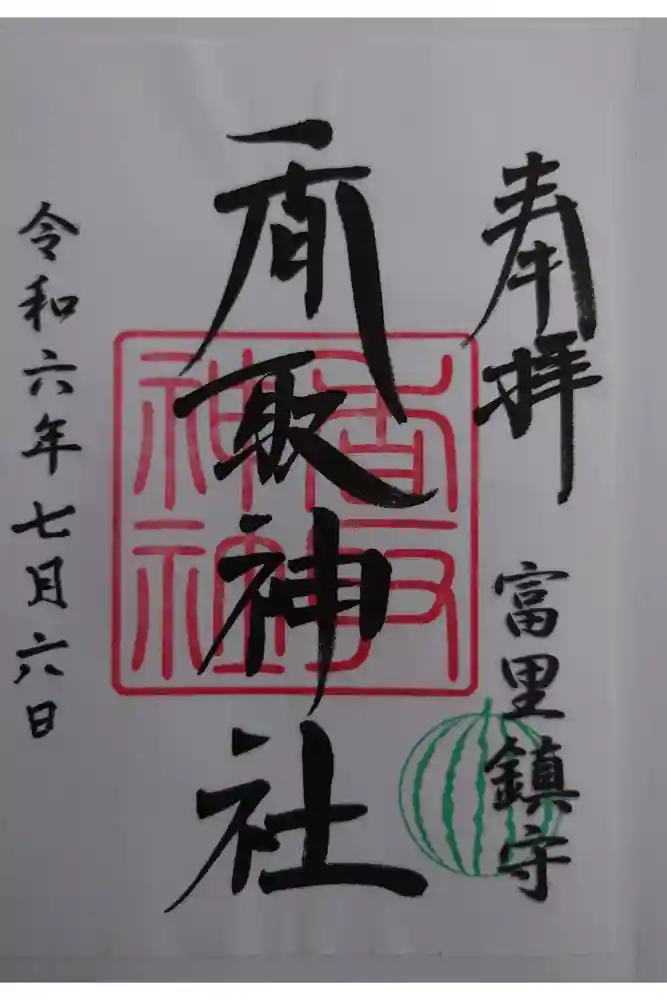 奉拝
富里鎮守
香取神社
香取
神社
令和六年七月六日